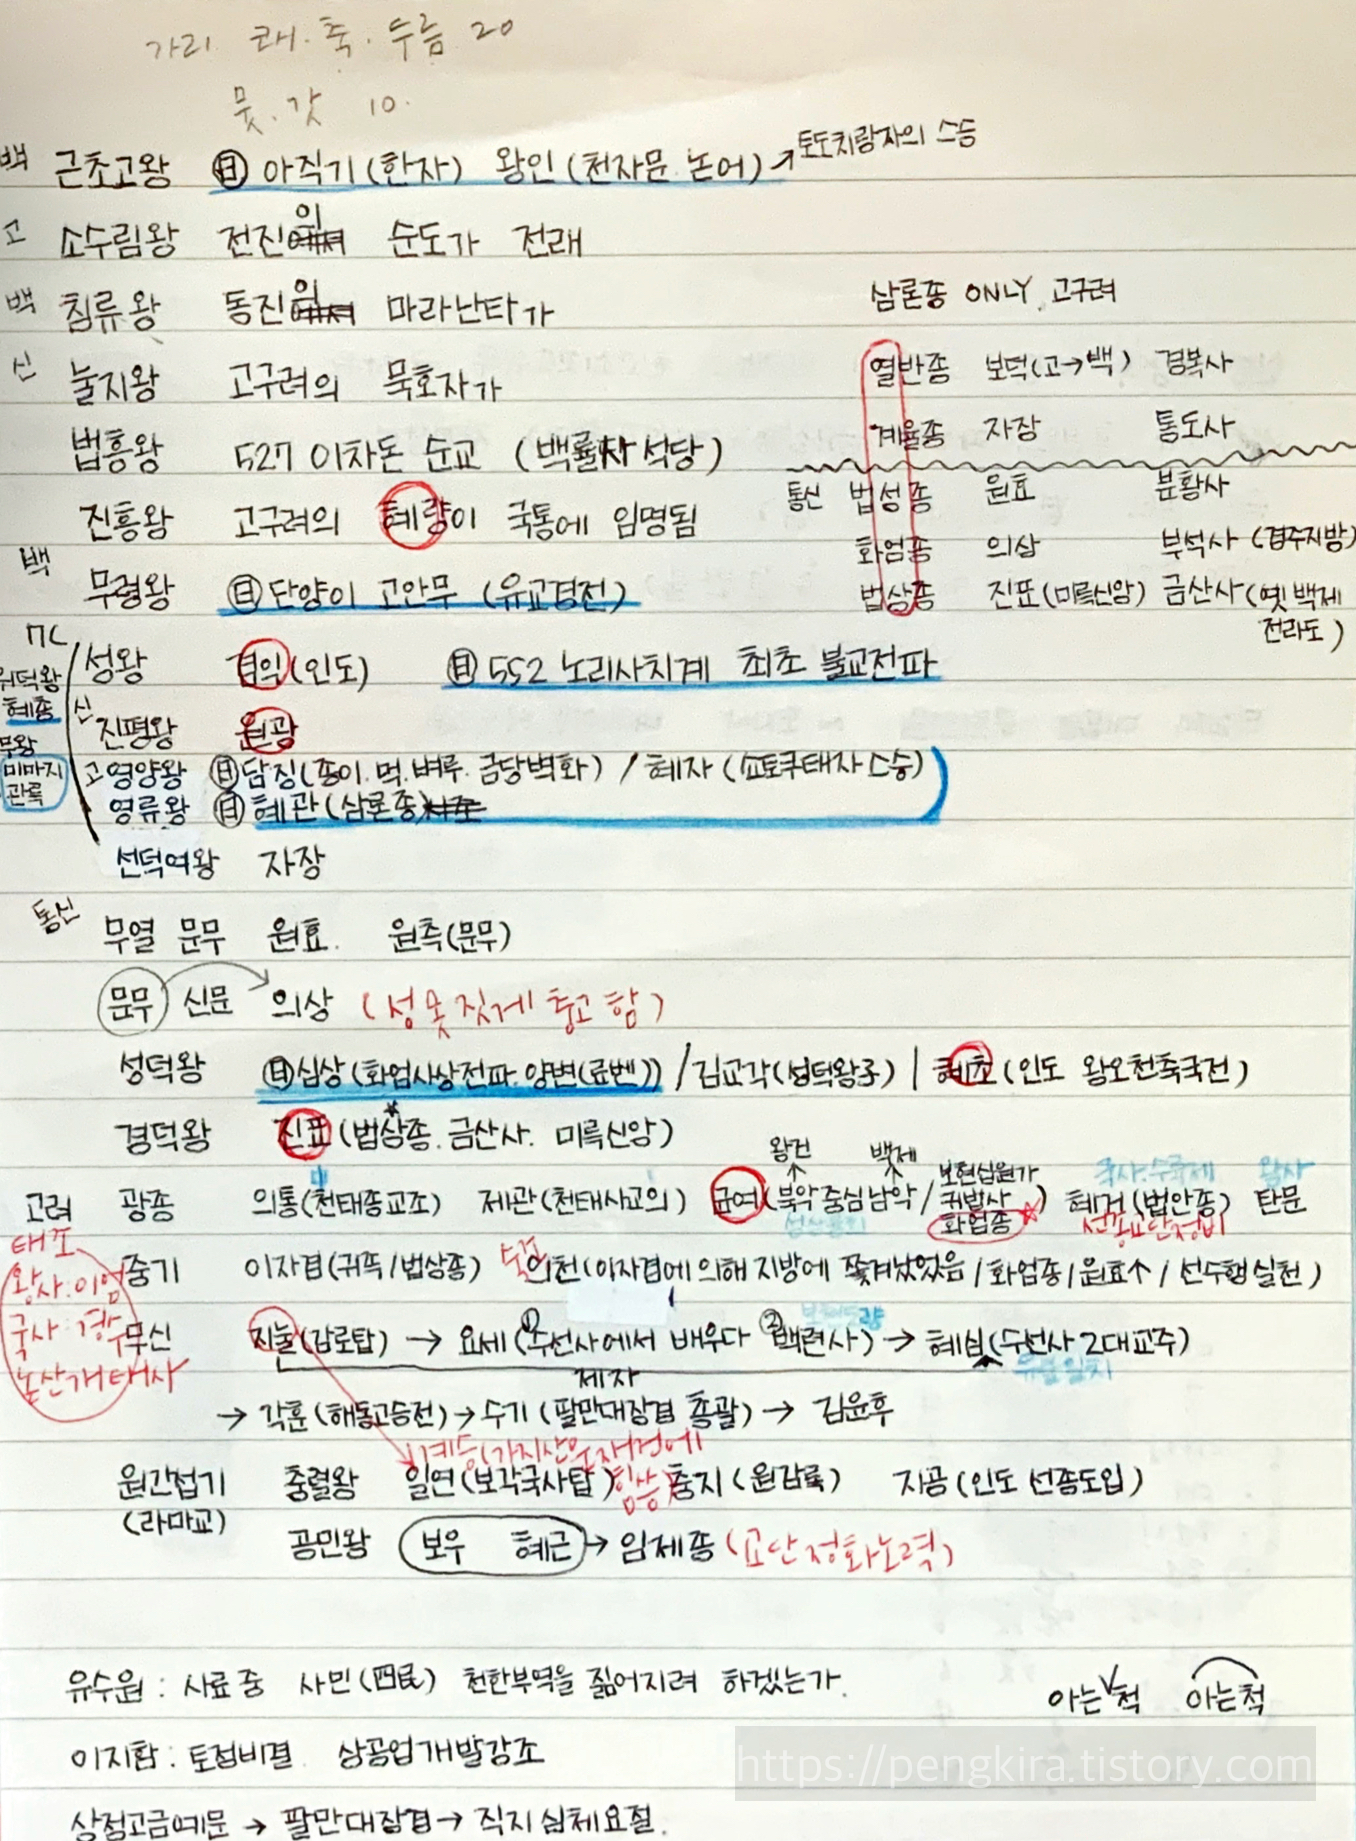 가리 쾌.축.두름 20
뭇.갓 10.
백 근초고왕 ㊐ 아직기(한자) 왕인(천자문 논어)↗토도치랑자의 스승
고 소수림왕 전진의 순도가 전래
백 침류왕 동진의 마라난타가
삼론종 ONLY 고구려
신 눌지왕 고구려의 묵호자가
열반종 보덕(고→백) 경복사
법흥왕 527 이차돈 순교 (백률사 석당)
계율종 자장 통도사
통신 법성종 원효 분황사
진흥왕 고구려의 혜량이 국통에 임명됨
화엄종 의상 부석사 (경주지방)
백 무령왕 ㊐단양이 고안무 (유교경전)
법상종 진표(미륵신앙) 금산사(옛백제 전라도)
성왕 겸익(인도) ㊐552 노리사치계 최초 불교전파
위덕왕
혜총
무왕
미마지
관륵
신 진평왕 원광
고 영양왕 ㊐담징(종이.먹.벼루.금당벽화) / 혜자(쇼토쿠태자스승)
영류왕 ㊐혜관(삼론종)
선덕여왕 자장
통신 무열 문무 원효. 원측(문무)
문무 신문 의상 (성못짓게 충고함)
성덕왕 ㊐심상(화엄사상전파.양변(료벤)) / 김교각(성덕왕子) / 혜초(인도 왕오천축국전)
경덕왕 진표(법상종.금산사. 미륵신앙)
왕건 백제 보현십원가 국사.수국제 왕사
고려 광종 의통(천태종교조) 제관(천태사교의) 균여(북악중심남악/귀법사 화엄종) 혜거(법안종) 탄문
성상융회 선종교단정비
태조
왕사:이엄
국사:경유
논산개태사
중기 이자겸(귀족/법상종) 의천(이자겸에의해 지방에 쫓겨났었음/화엄종/원효↑/선수행실천)
보현도량
무신 지눌(감로탑) → 요세(①수선사에서 배우다 ②백련사) → 혜심(수선사2대교주)
제자 유불일치
→ 각훈(해동고승전)→수기(팔만대장경 총괄)→ 김윤후
계승(가지산문재건에 힘씀)
원간섭기 충렬왕 일연(보각국사탑) 충지(원감록) 지공(인도 선종도입)
(라마교)
공민왕 보우 혜근→임제종(교단정화노력)
유수원 : 사료중 사민(四民) 천한부역을 짊어지려 하겠는가.
아는∨척 아는척
이지함 : 토정비결. 상공업개발강조
https://pengkira.tistory.com
상정고금예문 → 팔만대장경→ 직지심체요절.